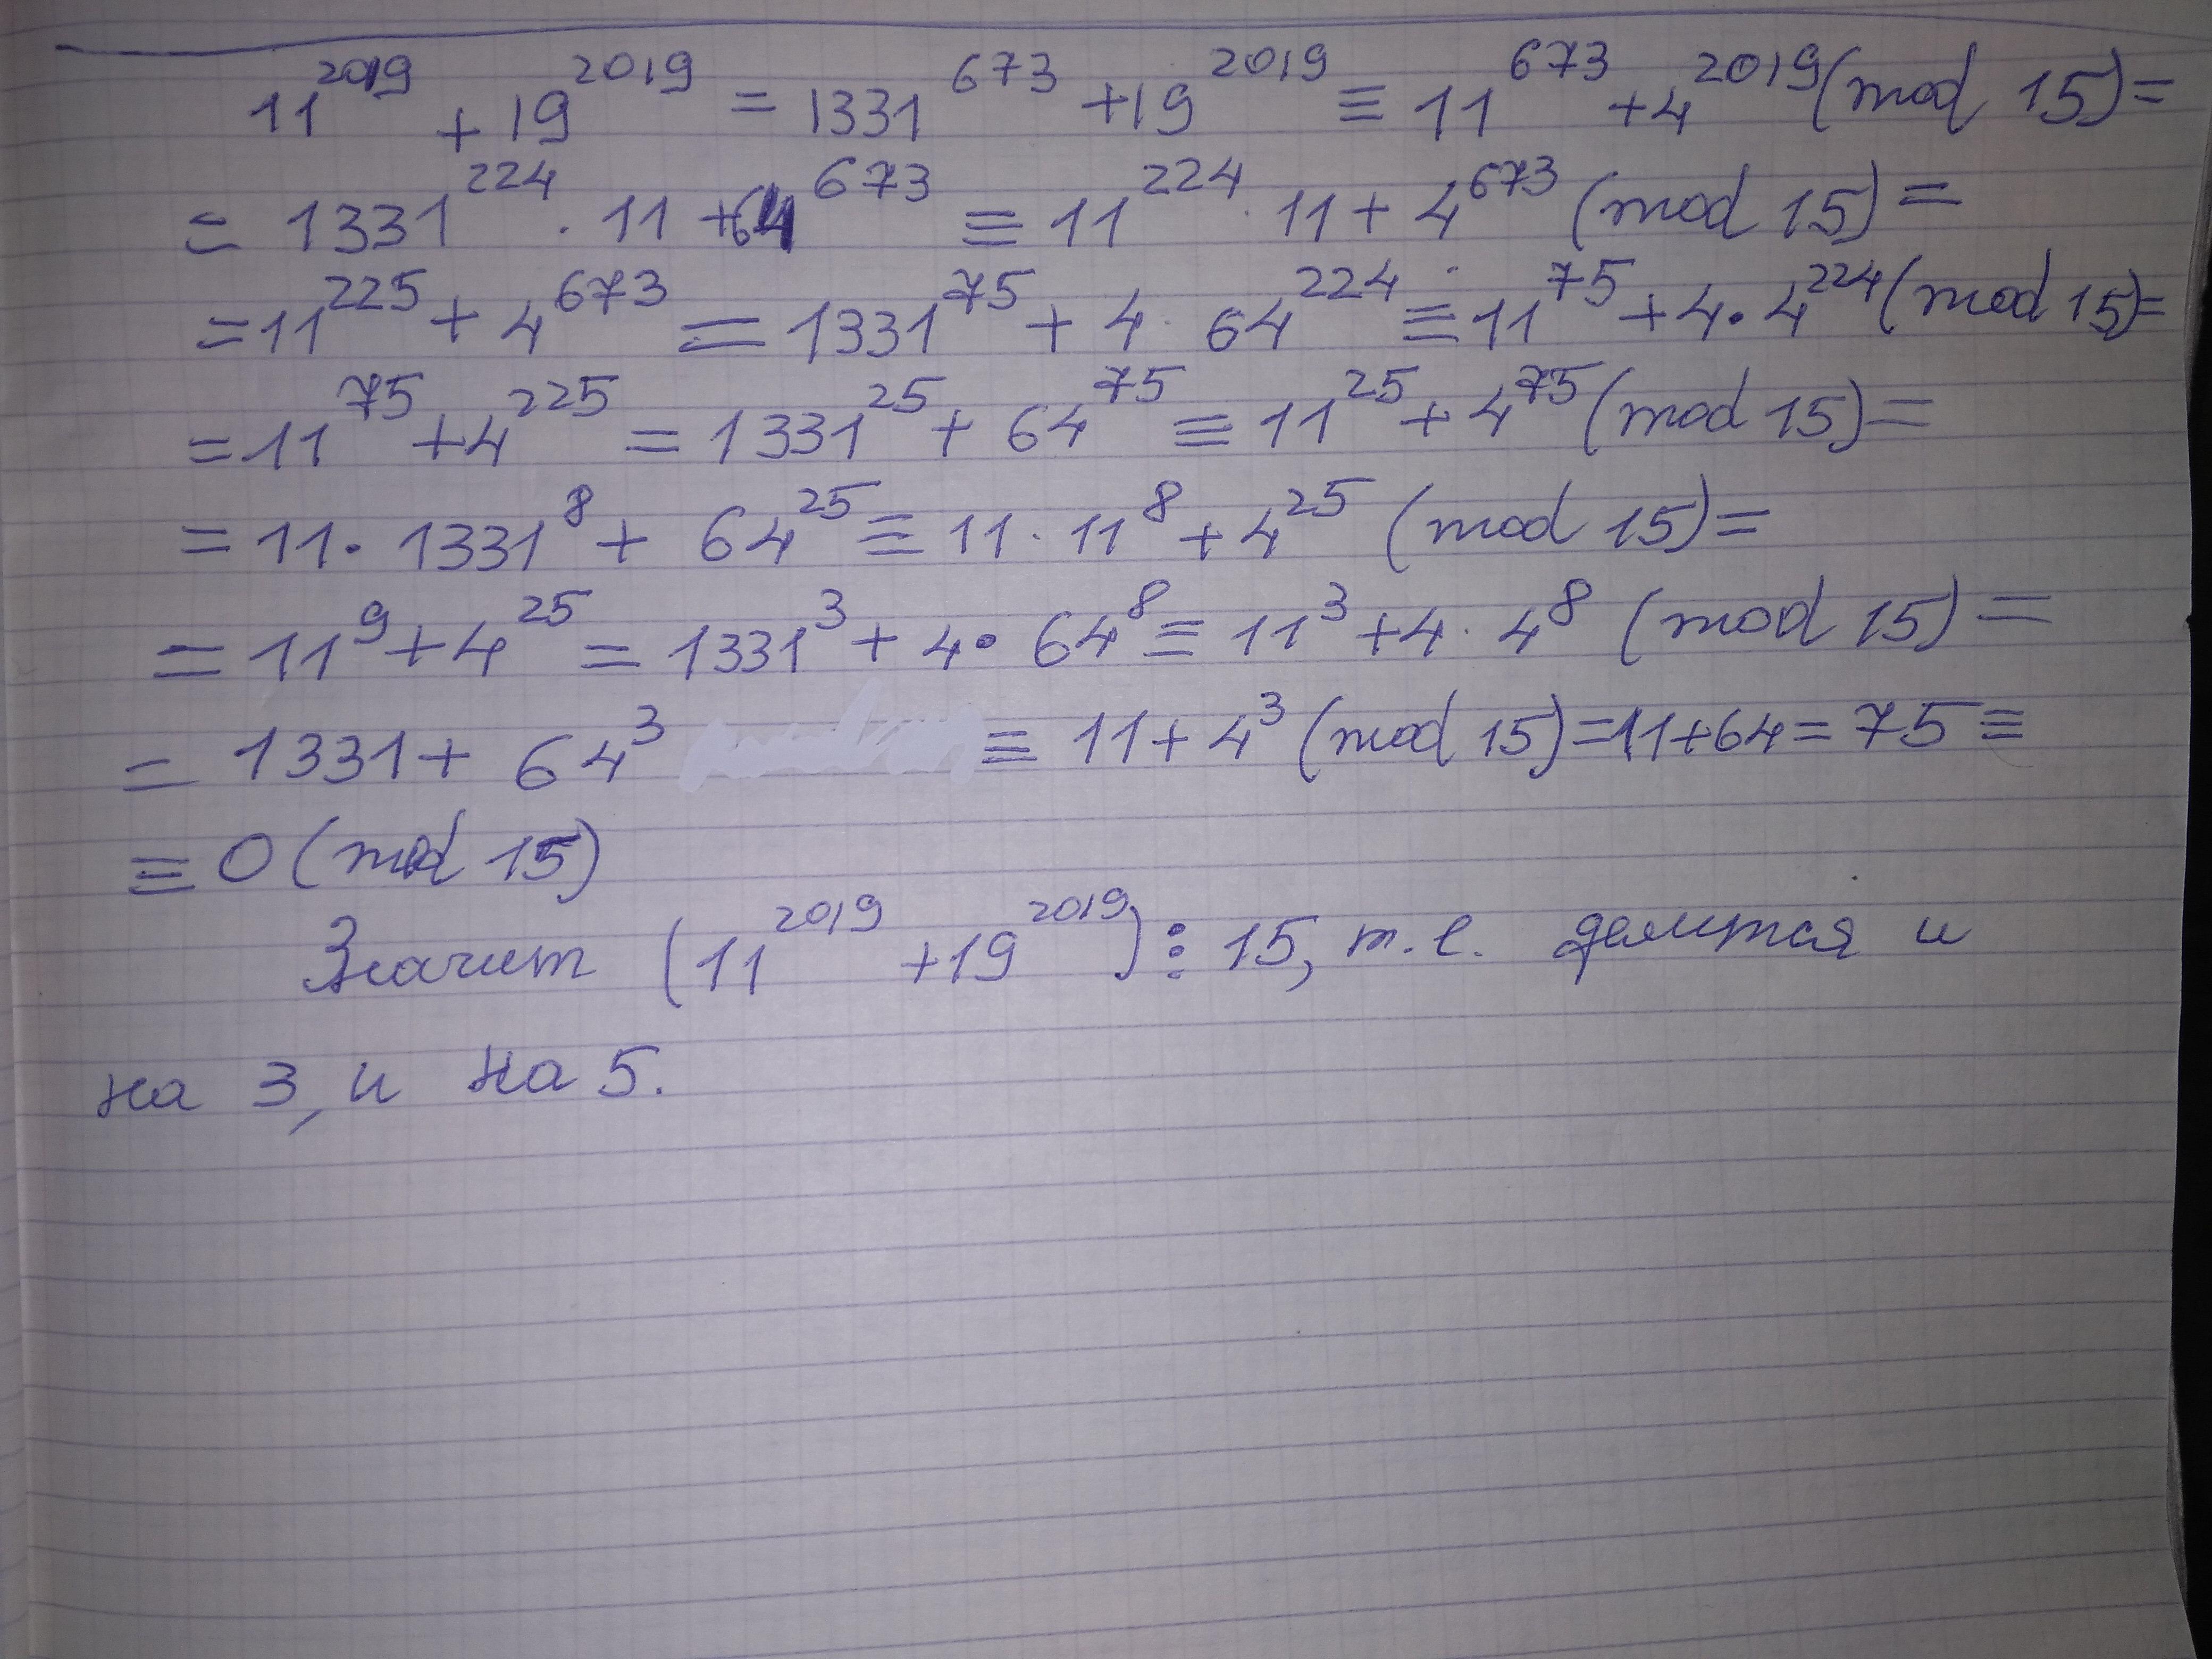 11^2019 + 19^2019 = 1331^673 + 19^2019 ≡ 11^673 + 4^2019 (mod 15) =
= 1331^224 · 11 + 64^673 ≡ 11^224 · 11 + 4^673 (mod 15) =
= 11^225 + 4^673 = 1331^75 + 4 · 64^224 ≡ 11^75 + 4 · 4^224 (mod 15) =
= 11^75 + 4^225 = 1331^25 + 64^75 ≡ 11^25 + 4^75 (mod 15) =
= 11 · 1331^8 + 64^25 ≡ 11 · 11^8 + 4^25 (mod 15) =
= 11^9 + 4^25 = 1331^3 + 4 · 64^8 ≡ 11^3 + 4 · 4^8 (mod 15) =
= 1331 + 64^3 ≡ 11 + 4^3 (mod 15) = 11 + 64 = 75 ≡
≡ 0 (mod 15)
Значит (11^2019 + 19^2019) ⋮ 15, т.е. делится и
на 3, и на 5.